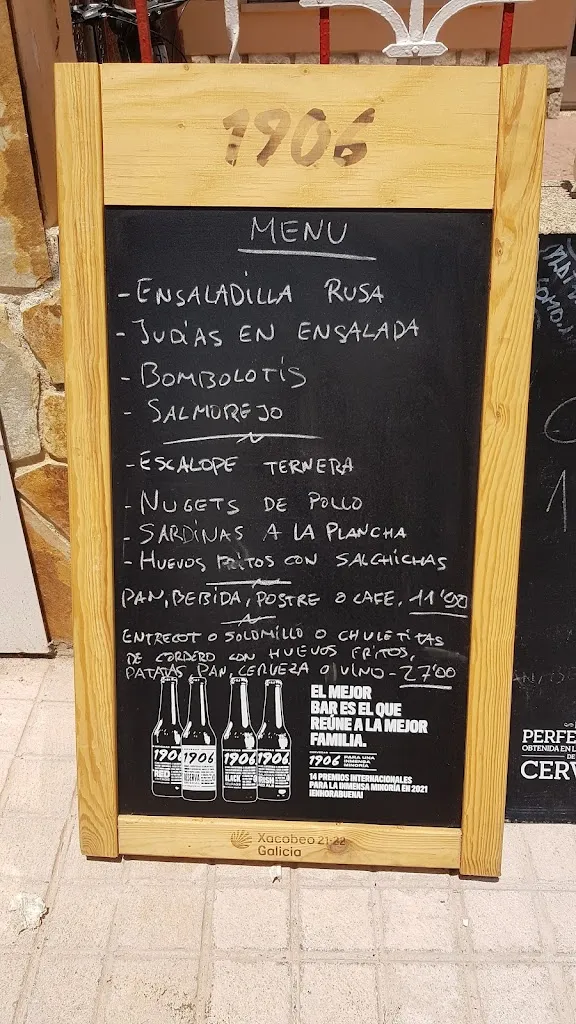 1906
MENU
- ENSALADILLA RUSA
- JUDIAS EN ENSALADA
- BOMBOLOTIS
- SALMOREJO
- ESCALOPE TERNERA
- NUGETS DE POLLO
- SARDINAS A LA PLANCHA
- HUEVOS FRITOS CON SALCHICHAS
PAN, BEBIDA, POSTRE O CAFE, 11'00
ENTRECOT O SOLOMILLO O CHULETITAS
DE CORDERO CON HUEVOS FRITOS,
PATATAS PAN CERVEZA O VINO - 27'00
EL MEJOR
BAR ES EL QUE
REÚNE A LA MEJOR
FAMILIA.
1906 PARA UNA INMENSA MINORÍA
14 PREMIOS INTERNACIONALES
PARA LA INMENSA MINORÍA EN 2021
¡ENHORABUENA!
1906 1906 1906 1906
RED RESERVA BLACK
Xacobeo 21·22
Galicia
PERFE
OBTENIDA EN L
DE
CERV